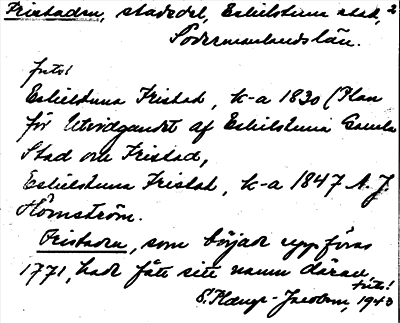 Fristaden, stadsdel, Eskilstuna stad, 2
Södermanlands län.
frits!
Eskilstuna Fristad, k-a 1830 (Plan
för Utvidgandet af Eskilstuna Gamla
Stad och Fristad,
Eskilstuna Fristad, k-a 1847 A. J.
Holmström.
Fristaden, som började uppföras
1771, hade fått sitt namn därav,
frits!
Jacobson, 1940